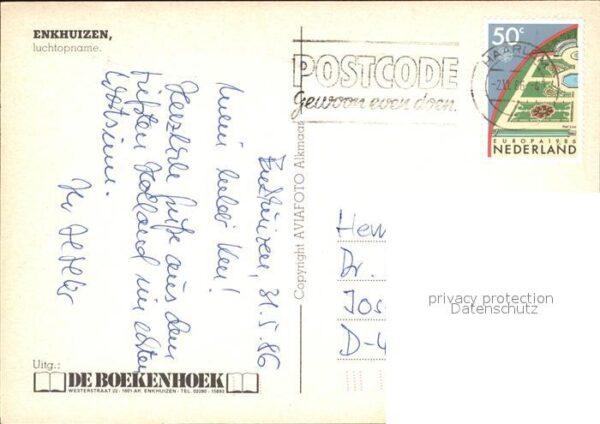 ENKHUIZEN,
luchtopname.
POSTCODE
Gewoon even doen.
HAARLEM
-2.VI.86
50c
EUROPA 1986
NEDERLAND
Enkhuizen, 31.5.86
Mein lieber
Herzliche Grüße aus dem
tiefsten Holland
Ihr
Copyright AVIAFOTO Alkmaar
Dr.
Jos
D-4
privacy protection
Datenschutz
Uitg.:
DE BOEKENHOEK
WESTERSTRAAT 22 - 1601 AK ENKHUIZEN - TEL.